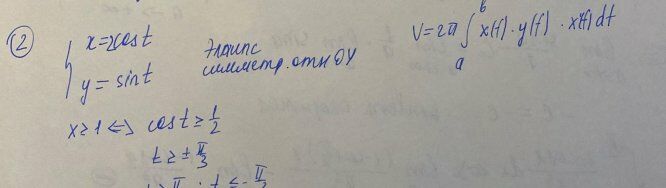 ② { x=2cost
y=sint
эллипс
симметр. отн OY
V=2π ∫ₐᵇ x(t)·y(t)·x'(t)dt
x≥1 ⇔ cost ≥ 1/2
t ≥ ± π/3